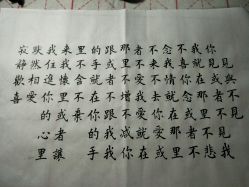 寂默我来里的跟那者不念不我你
静然住我不手或里不来我喜就見見
歡相進懷含就者不愛不情你在或與
喜愛你里不在不增我去就念那者不
的或亲你跟不愛你在或里不見
心者的我减就爱那者不見
里讓手我你在或里不悲我